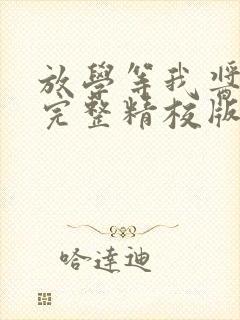 放學等我將
完整精校版
哈達迪